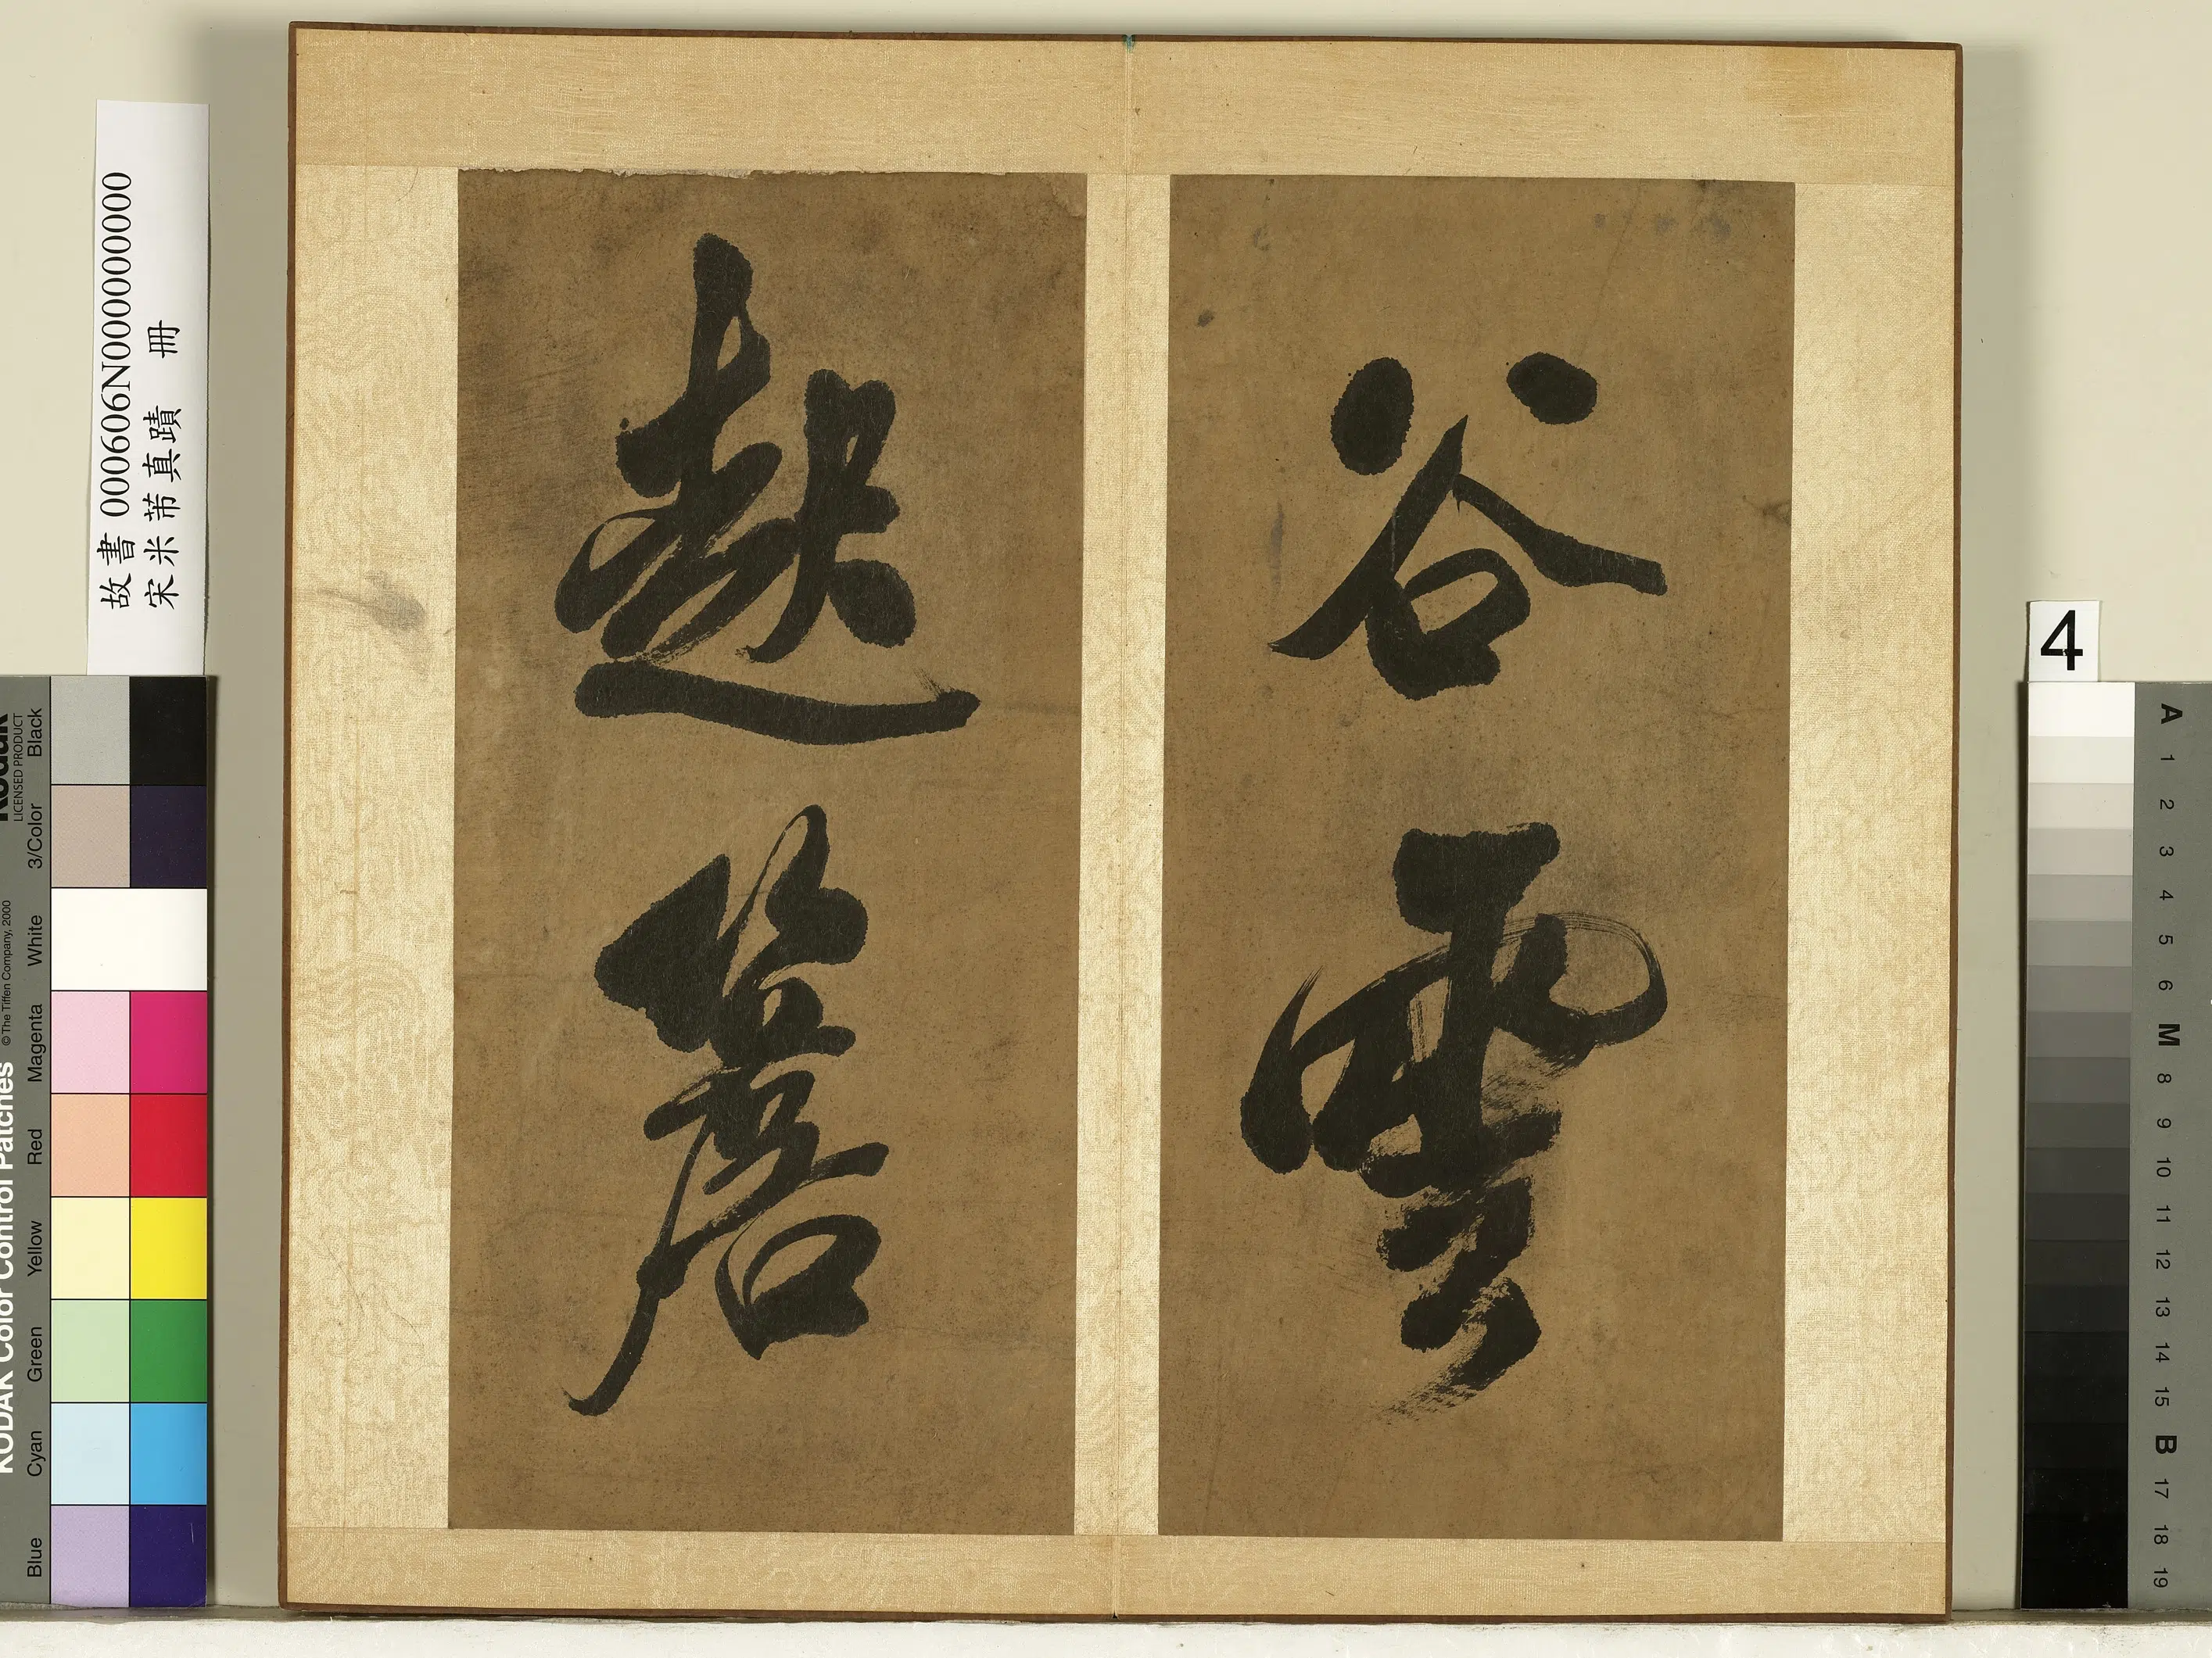 故書 000606N000000000
宋米芾真蹟 冊
谷雲
簷
4
Kodak
LICENSED PRODUCT
KODAK Color Control Patches
© The Tiffen Company, 2000
Blue Cyan Green Yellow Red Magenta White 3/Color Black
A 1 2 3 4 5 6 M 8 9 10 11 12 13 14 15 B 17 18 19